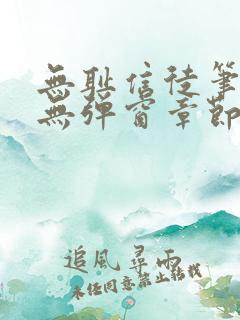 無耻信徒筆
無彈窗章節
追風尋雨
未经同意禁止转载